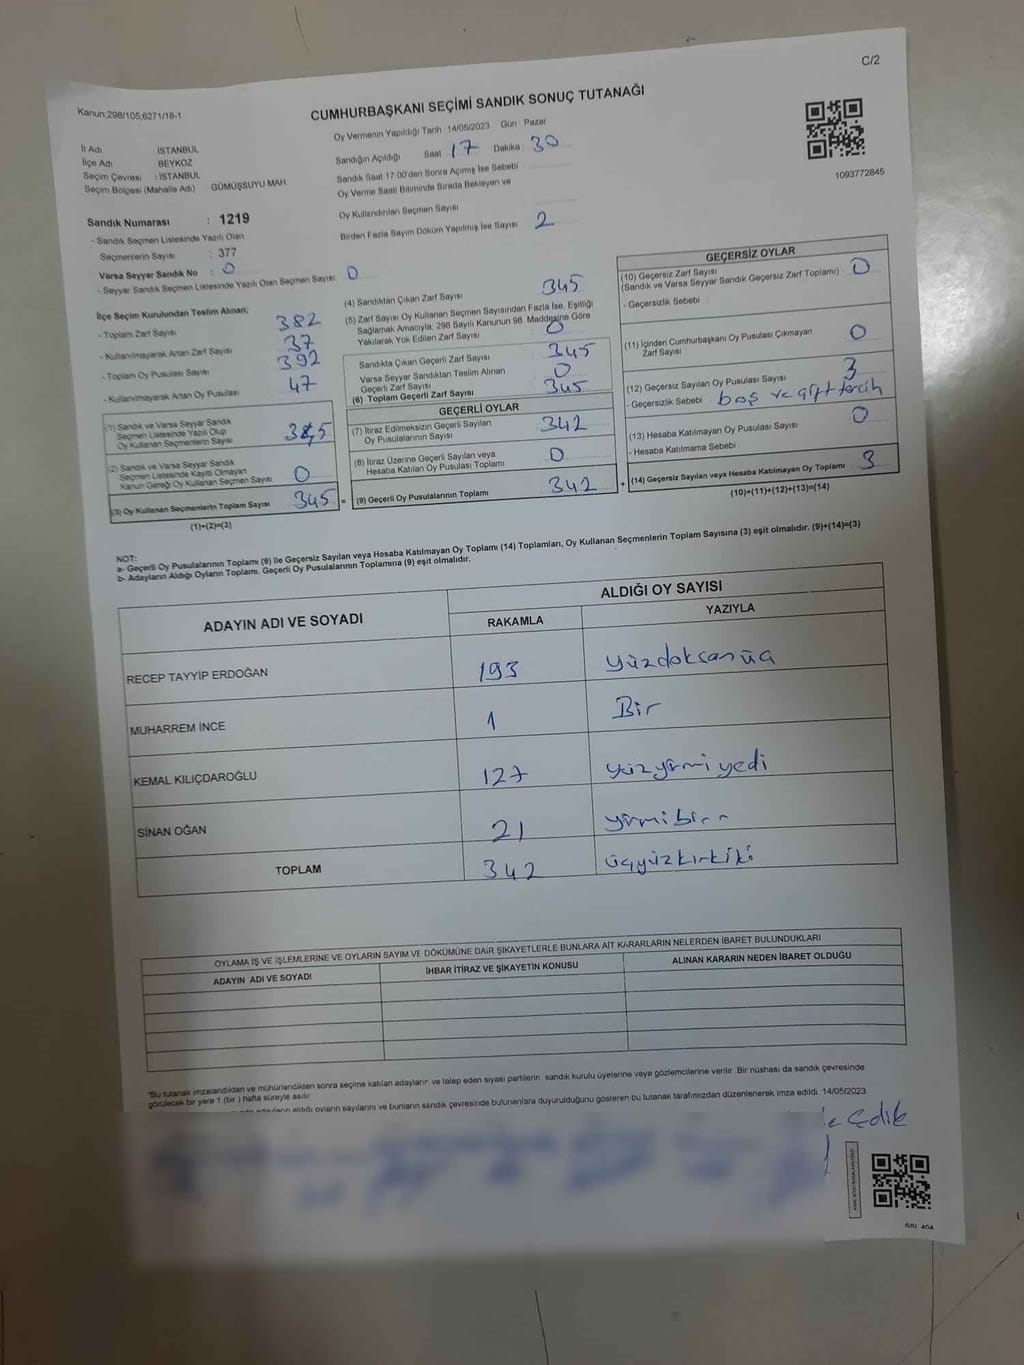 C/2
Kanun;298/105,6271/18-1
CUMHURBAŞKANI SEÇİMİ SANDIK SONUÇ TUTANAĞI
Oy Vermenin Yapıldığı Tarih 14/05/2023 Gün Pazar
İl Adı : İSTANBUL
İlçe Adı : BEYKOZ
Seçim Çevresi : İSTANBUL
Seçim Bölgesi (Mahalle Adı) : GÜMÜŞSUYU MAH.
Sandığın Açıldığı Saat 17 Dakika 30
Sandık Saat 17:00'den Sonra Açımış İse Sebebi
Oy Verme Saati Bitiminde Sırada Bekleyen ve
Oy Kullandırılan Seçmen Sayısı
Birden Fazla Sayım Döküm Yapılmış İse Sayısı 2
1093772845
Sandık Numarası : 1219
- Sandık Seçmen Listesinde Yazılı Olan
Seçmenlerin Sayısı : 377
Varsa Seyyar Sandık No : 0
- Seyyar Sandık Seçmen Listesinde Yazılı Olan Seçmen Sayısı: 0
İlçe Seçim Kurulundan Teslim Alınan;
- Toplam Zarf Sayısı 382
- Kullanılmayarak Artan Zarf Sayısı 37
- Toplam Oy Pusulası Sayısı 392
- Kullanılmayarak Artan Oy Pusulası 47
(1) Sandık ve Varsa Seyyar Sandık
Seçmen Listesinde Yazılı Olup
Oy Kullanan Seçmenlerin Sayısı
(2) Sandık ve Varsa Seyyar Sandık
Seçmen Listesinde Kayıtlı Olmayan
Kanun Gereği Oy Kullanan Seçmen Sayısı 0
(3) Oy Kullanan Seçmenlerin Toplam Sayısı 345 =
(1)+(2)=(3)
(4) Sandıktan Çıkan Zarf Sayısı 345
(5) Zarf Sayısı Oy Kullanan Seçmen Sayısından Fazla İse, Eşitliği
Sağlamak Amacıyla; 298 Sayılı Kanunun 98. Maddesine Göre
Yakılarak Yok Edilen Zarf Sayısı 0
Sandıkta Çıkan Geçerli Zarf Sayısı 345
Varsa Seyyar Sandıktan Teslim Alınan
Geçerli Zarf Sayısı 0
(6) Toplam Geçerli Zarf Sayısı 345
GEÇERLİ OYLAR
(7) İtiraz Edilmeksizin Geçerli Sayılan
Oy Pusulalarının Sayısı 342
(8) İtiraz Üzerine Geçerli Sayılan veya
Hesaba Katılan Oy Pusulası Toplamı 0
(9) Geçerli Oy Pusulalarının Toplamı 342 +
GEÇERSİZ OYLAR
(10) Geçersiz Zarf Sayısı 0
(Sandık ve Varsa Seyyar Sandık Geçersiz Zarf Toplamı)
- Geçersizlik Sebebi
(11) İçinden Cumhurbaşkanı Oy Pusulası Çıkmayan
Zarf Sayısı 0
(12) Geçersiz Sayılan Oy Pusulası Sayısı 3
- Geçersizlik Sebebi boş ve çift tercih
(13) Hesaba Katılmayan Oy Pusulası Sayısı 0
- Hesaba Katılmama Sebebi
(14) Geçersiz Sayılan veya Hesaba Katılmayan Oy Toplamı 3
(10)+(11)+(12)+(13)=(14)
NOT:
a- Geçerli Oy Pusulalarının Toplamı (9) ile Geçersiz Sayılan veya Hesaba Katılmayan Oy Toplamı (14) Toplamları, Oy Kullanan Seçmenlerin Toplam Sayısına (3) eşit olmalıdır. (9)+(14)=(3)
b- Adayların Aldığı Oyların Toplamı, Geçerli Oy Pusulalarının Toplamına (9) eşit olmalıdır.
ADAYIN ADI VE SOYADI
ALDIĞI OY SAYISI
RAKAMLA YAZIYLA
RECEP TAYYİP ERDOĞAN 193 yüzdoksanüç
MUHARREM İNCE 1 Bir
KEMAL KILIÇDAROĞLU 127 yüzyirmiyedi
SİNAN OĞAN 21 yirmibir
TOPLAM 342 üçyüzkırkiki
OYLAMA İŞ VE İŞLEMLERİNE VE OYLARIN SAYIM VE DÖKÜMÜNE DAİR ŞİKAYETLERLE BUNLARA AİT KARARLARIN NELERDEN İBARET BULUNDUKLARI
ADAYIN ADI VE SOYADI İHBAR İTİRAZ VE ŞİKAYETİN KONUSU ALINAN KARARIN NEDEN İBARET OLDUĞU
"Bu tutanak imzalandıktan ve mühürlendikten sonra seçime katılan adayların ve talep eden siyasi partilerin sandık kurulu üyelerine veya gözlemcilerine verilir. Bir nüshası da sandık çevresinde
görülecek bir yere 1 (bir) hafta süreyle asılır
aldığı oyların sayılarını ve bunların sandık çevresinde bulunanlara duyurulduğunu gösteren bu tutanak tarafımızdan düzenlenerek imza edildi. 14/05/2023